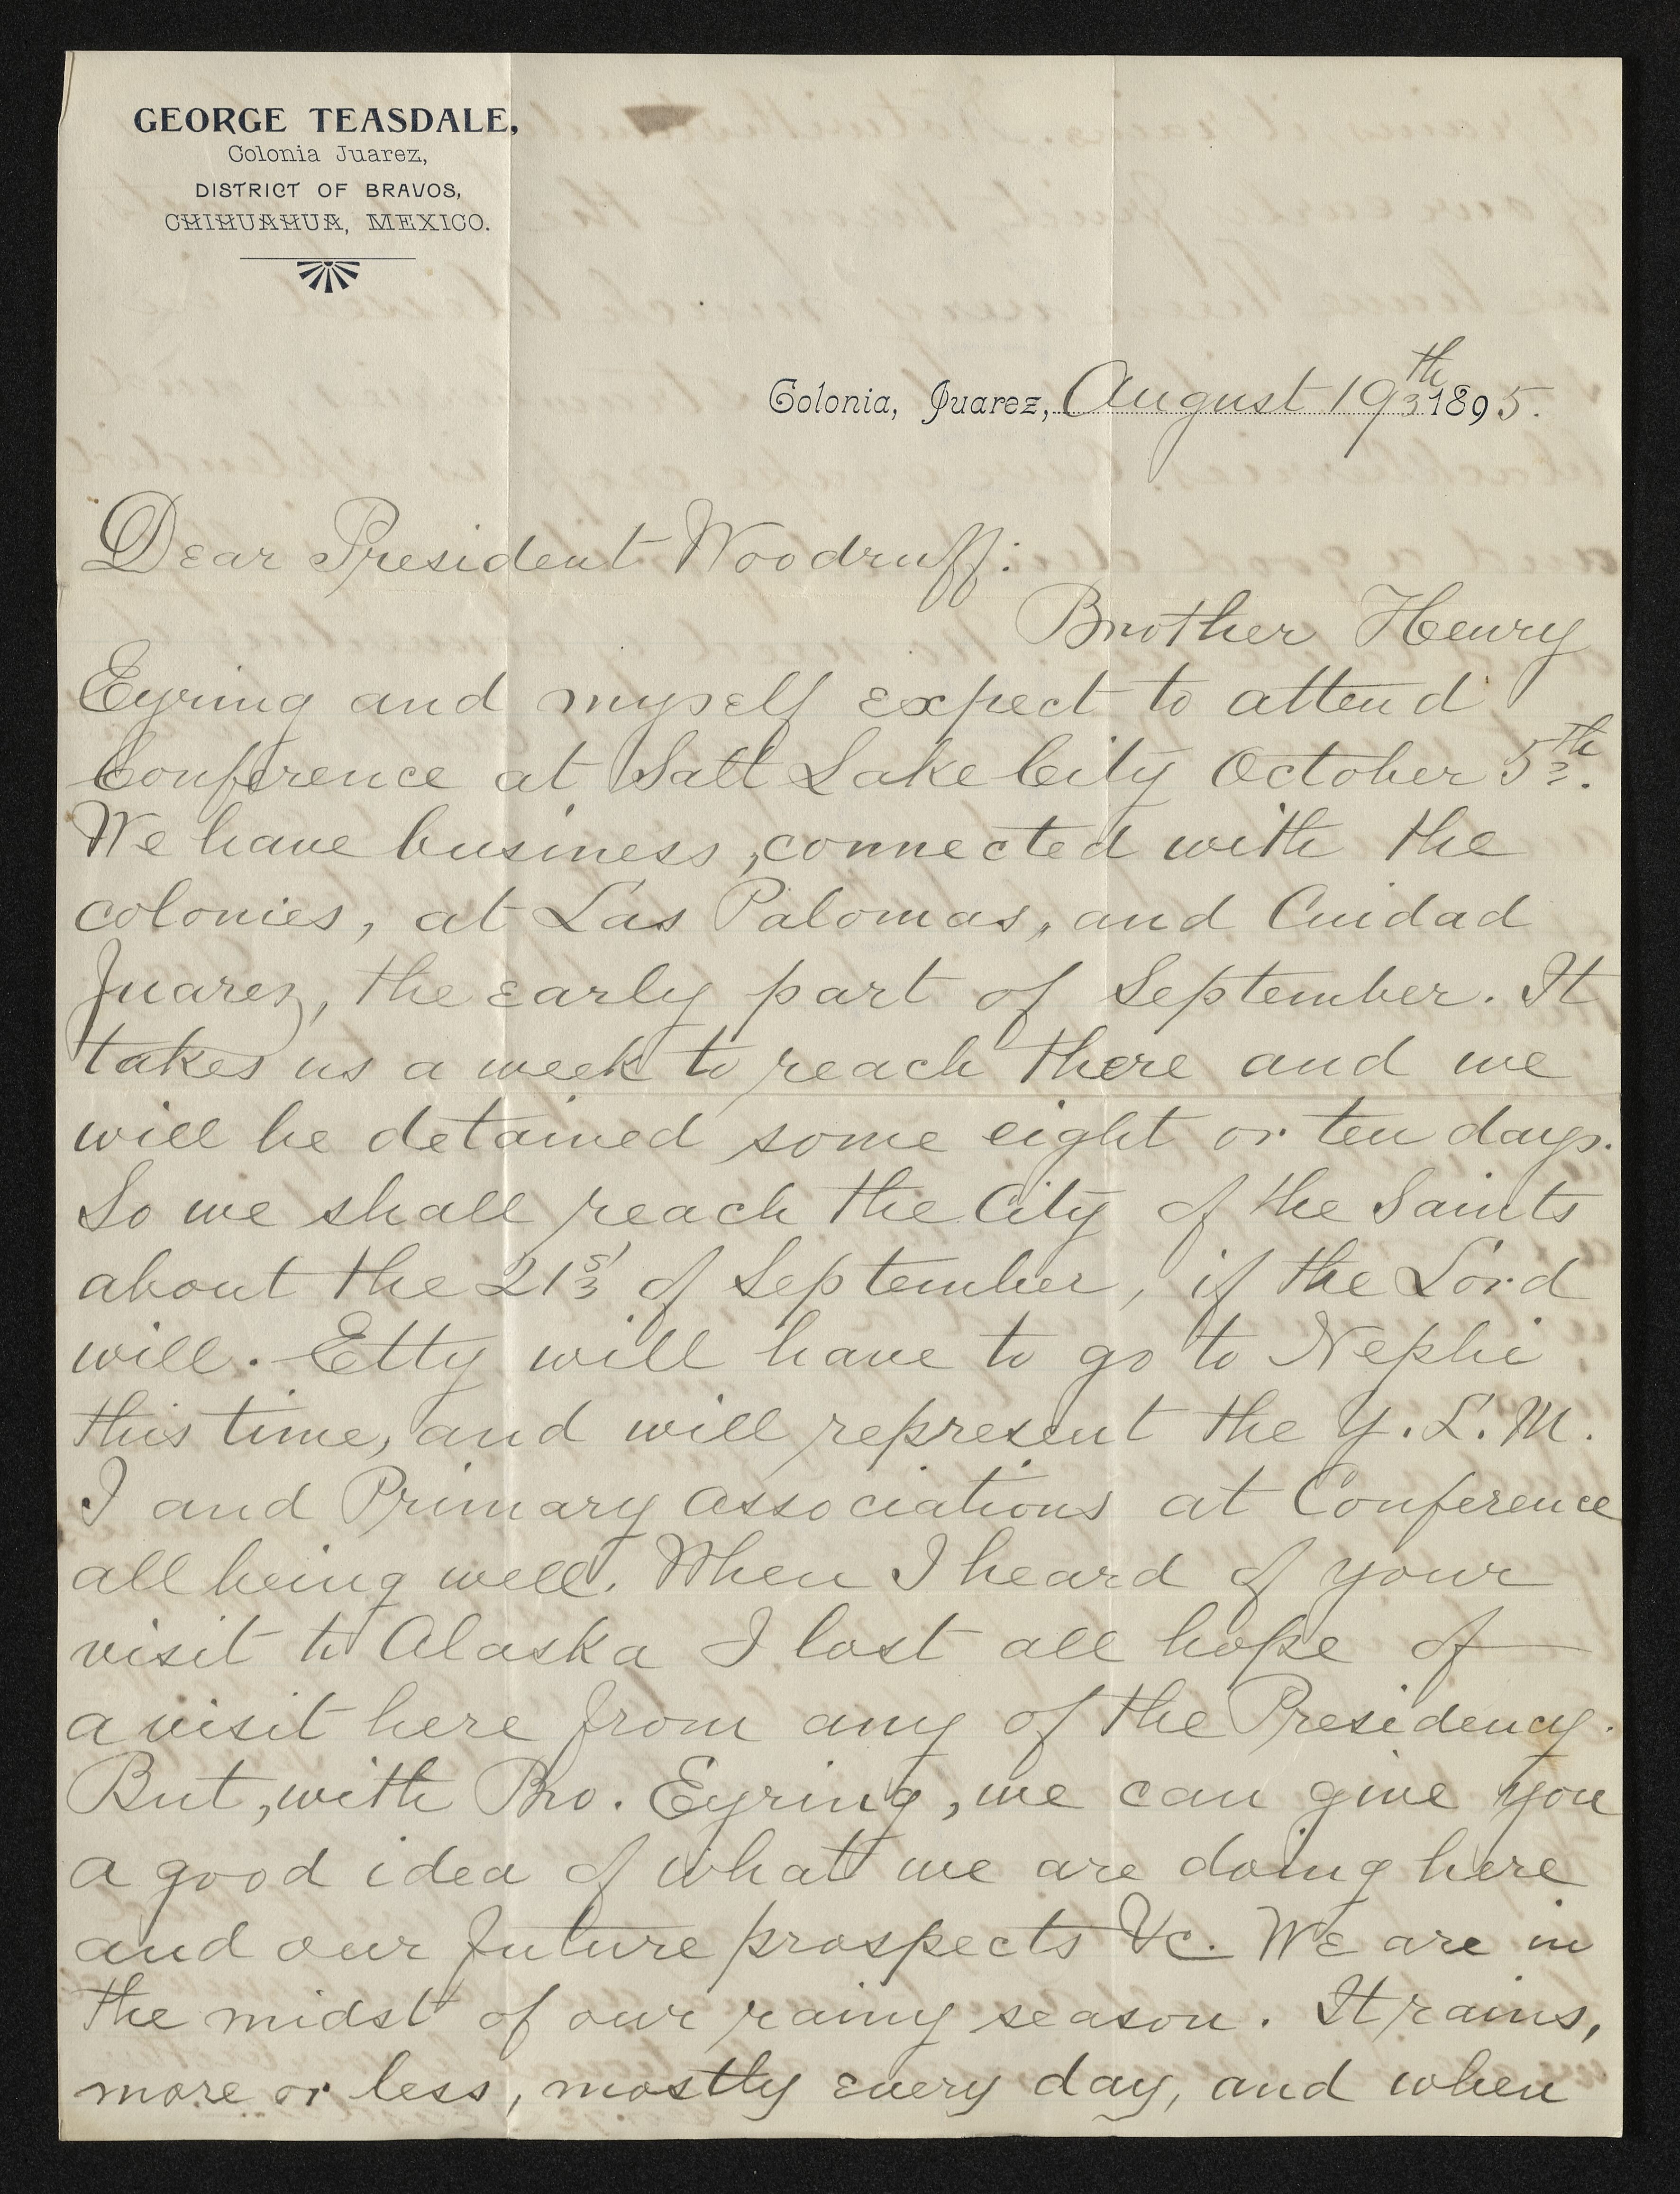 GEORGE TEASDALE,
Colonia Juarez,
DISTRICT OF BRAVOS,
CHIHUAHUA, MEXICO.
Colonia, Juarez, August 19th 1895.
Dear President Woodruff:
Brother Henry
Eyring and myself expect to attend
Conference at Salt Lake City October 5th.
We have business, connected with the
colonies, at Las Palomas, and Cuidad
Juarez, the early part of September. It
takes us a week to reach there and we
will be detained some eight or ten days.
So we shall reach the City of the Saints
about the 21st of September, if the Lord
will. Etty will have to go to Nephi
this time, and will represent the Y. L. M.
I and Primary Associations at Conference
all being well. When I heard of your
visit to Alaska I lost all hope of
a visit here from any of the Presidency.
But, with Bro. Eyring, we can give you
a good idea of what we are doing here
and our future prospects &c. We are in
the midst of our rainy season. It rains,
more or less, mostly every day, and when